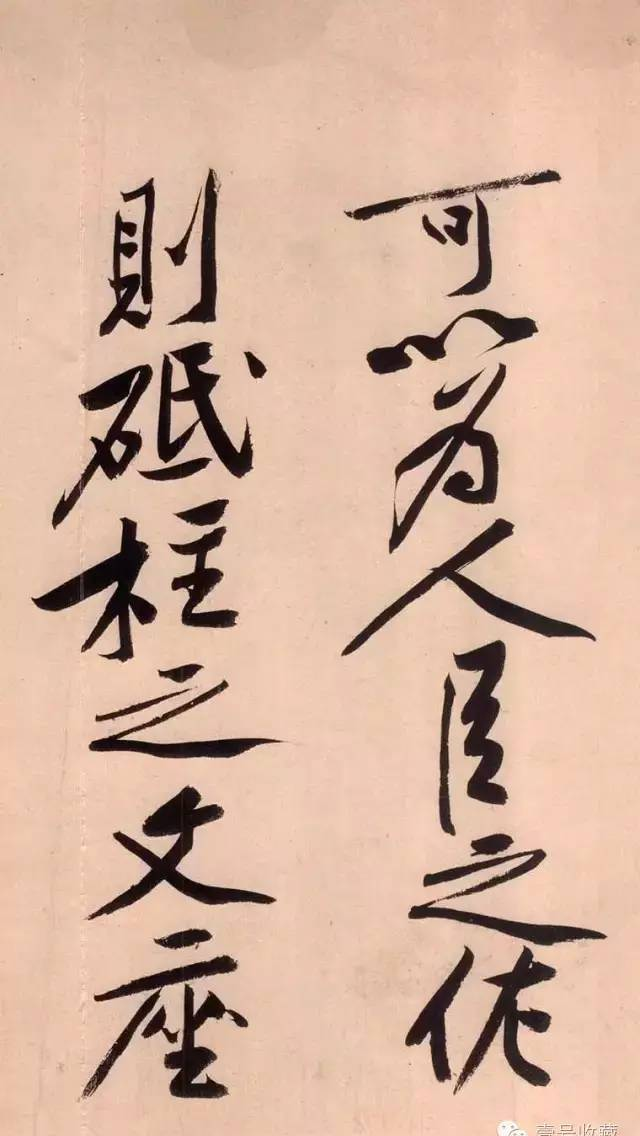 可以為人臣之佐
則砥柱之文座
壹号收藏